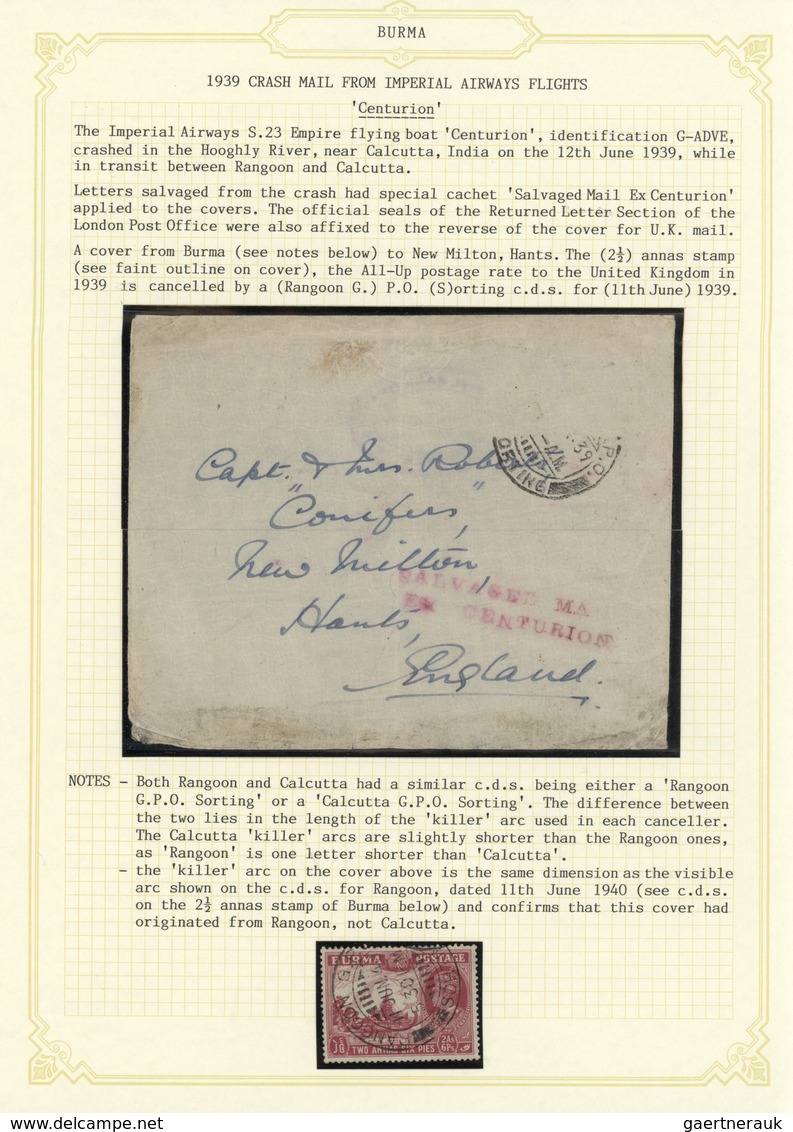 BURMA
1939 CRASH MAIL FROM IMPERIAL AIRWAYS FLIGHTS
'Centurion'
The Imperial Airways S.23 Empire flying boat 'Centurion', identification G-ADVE,
crashed in the Hooghly River, near Calcutta, India on the 12th June 1939, while
in transit between Rangoon and Calcutta.
Letters salvaged from the crash had special cachet 'Salvaged Mail Ex Centurion'
applied to the covers. The official seals of the Returned Letter Section of the
London Post Office were also affixed to the reverse of the cover for U.K. mail.
A cover from Burma (see notes below) to New Milton, Hants. The (2½) annas stamp
(see faint outline on cover), the All-Up postage rate to the United Kingdom in
1939 is cancelled by a (Rangoon G.) P.O. (S)orting c.d.s. for (11th June) 1939.
P.O.
39
ORTING
Capt. & Mrs. Robe
"Conifers,"
New Milton,
Hants,
England.
SALVAGED MA
EX CENTURION
NOTES - Both Rangoon and Calcutta had a similar c.d.s. being either a 'Rangoon
G.P.O. Sorting' or a 'Calcutta G.P.O. Sorting'. The difference between
the two lies in the length of the 'killer' arc used in each canceller.
The Calcutta 'killer' arcs are slightly shorter than the Rangoon ones,
as 'Rangoon' is one letter shorter than 'Calcutta'.
- the 'killer' arc on the cover above is the same dimension as the visible
arc shown on the c.d.s. for Rangoon, dated 11th June 1940 (see c.d.s.
on the 2½ annas stamp of Burma below) and confirms that this cover had
originated from Rangoon, not Calcutta.
BURMA POSTAGE
2As
6Ps
TWO ANNAS SIX PIES
gaertnerauk